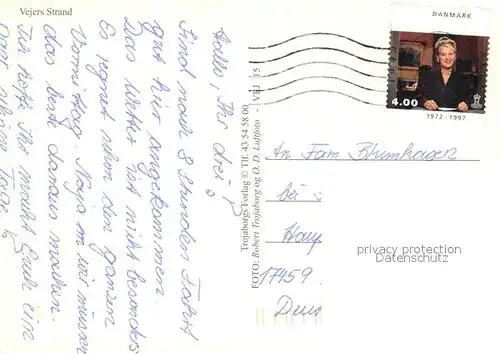 Vejers Strand
Hallo, Ihr drei!
Sind nach 8 Stunden Fahrt
gut hier angekommen.
Das Wetter ist nicht besonders
Es regnet schon den ganzen
Vormittag. Naja, wir müssen
das beste daraus machen.
Ich hoffe Ihr macht Euch ein
paar schöne Tage!
Trojaborgs Forlag © Tlf. 43 54 58 00
FOTO: Robert Trojaborg og O. D. Luftfoto - VRJ 15
DANMARK
4.00
1972-1997
An Fam Blumhagen
bei
17459
privacy protection
Datenschutz